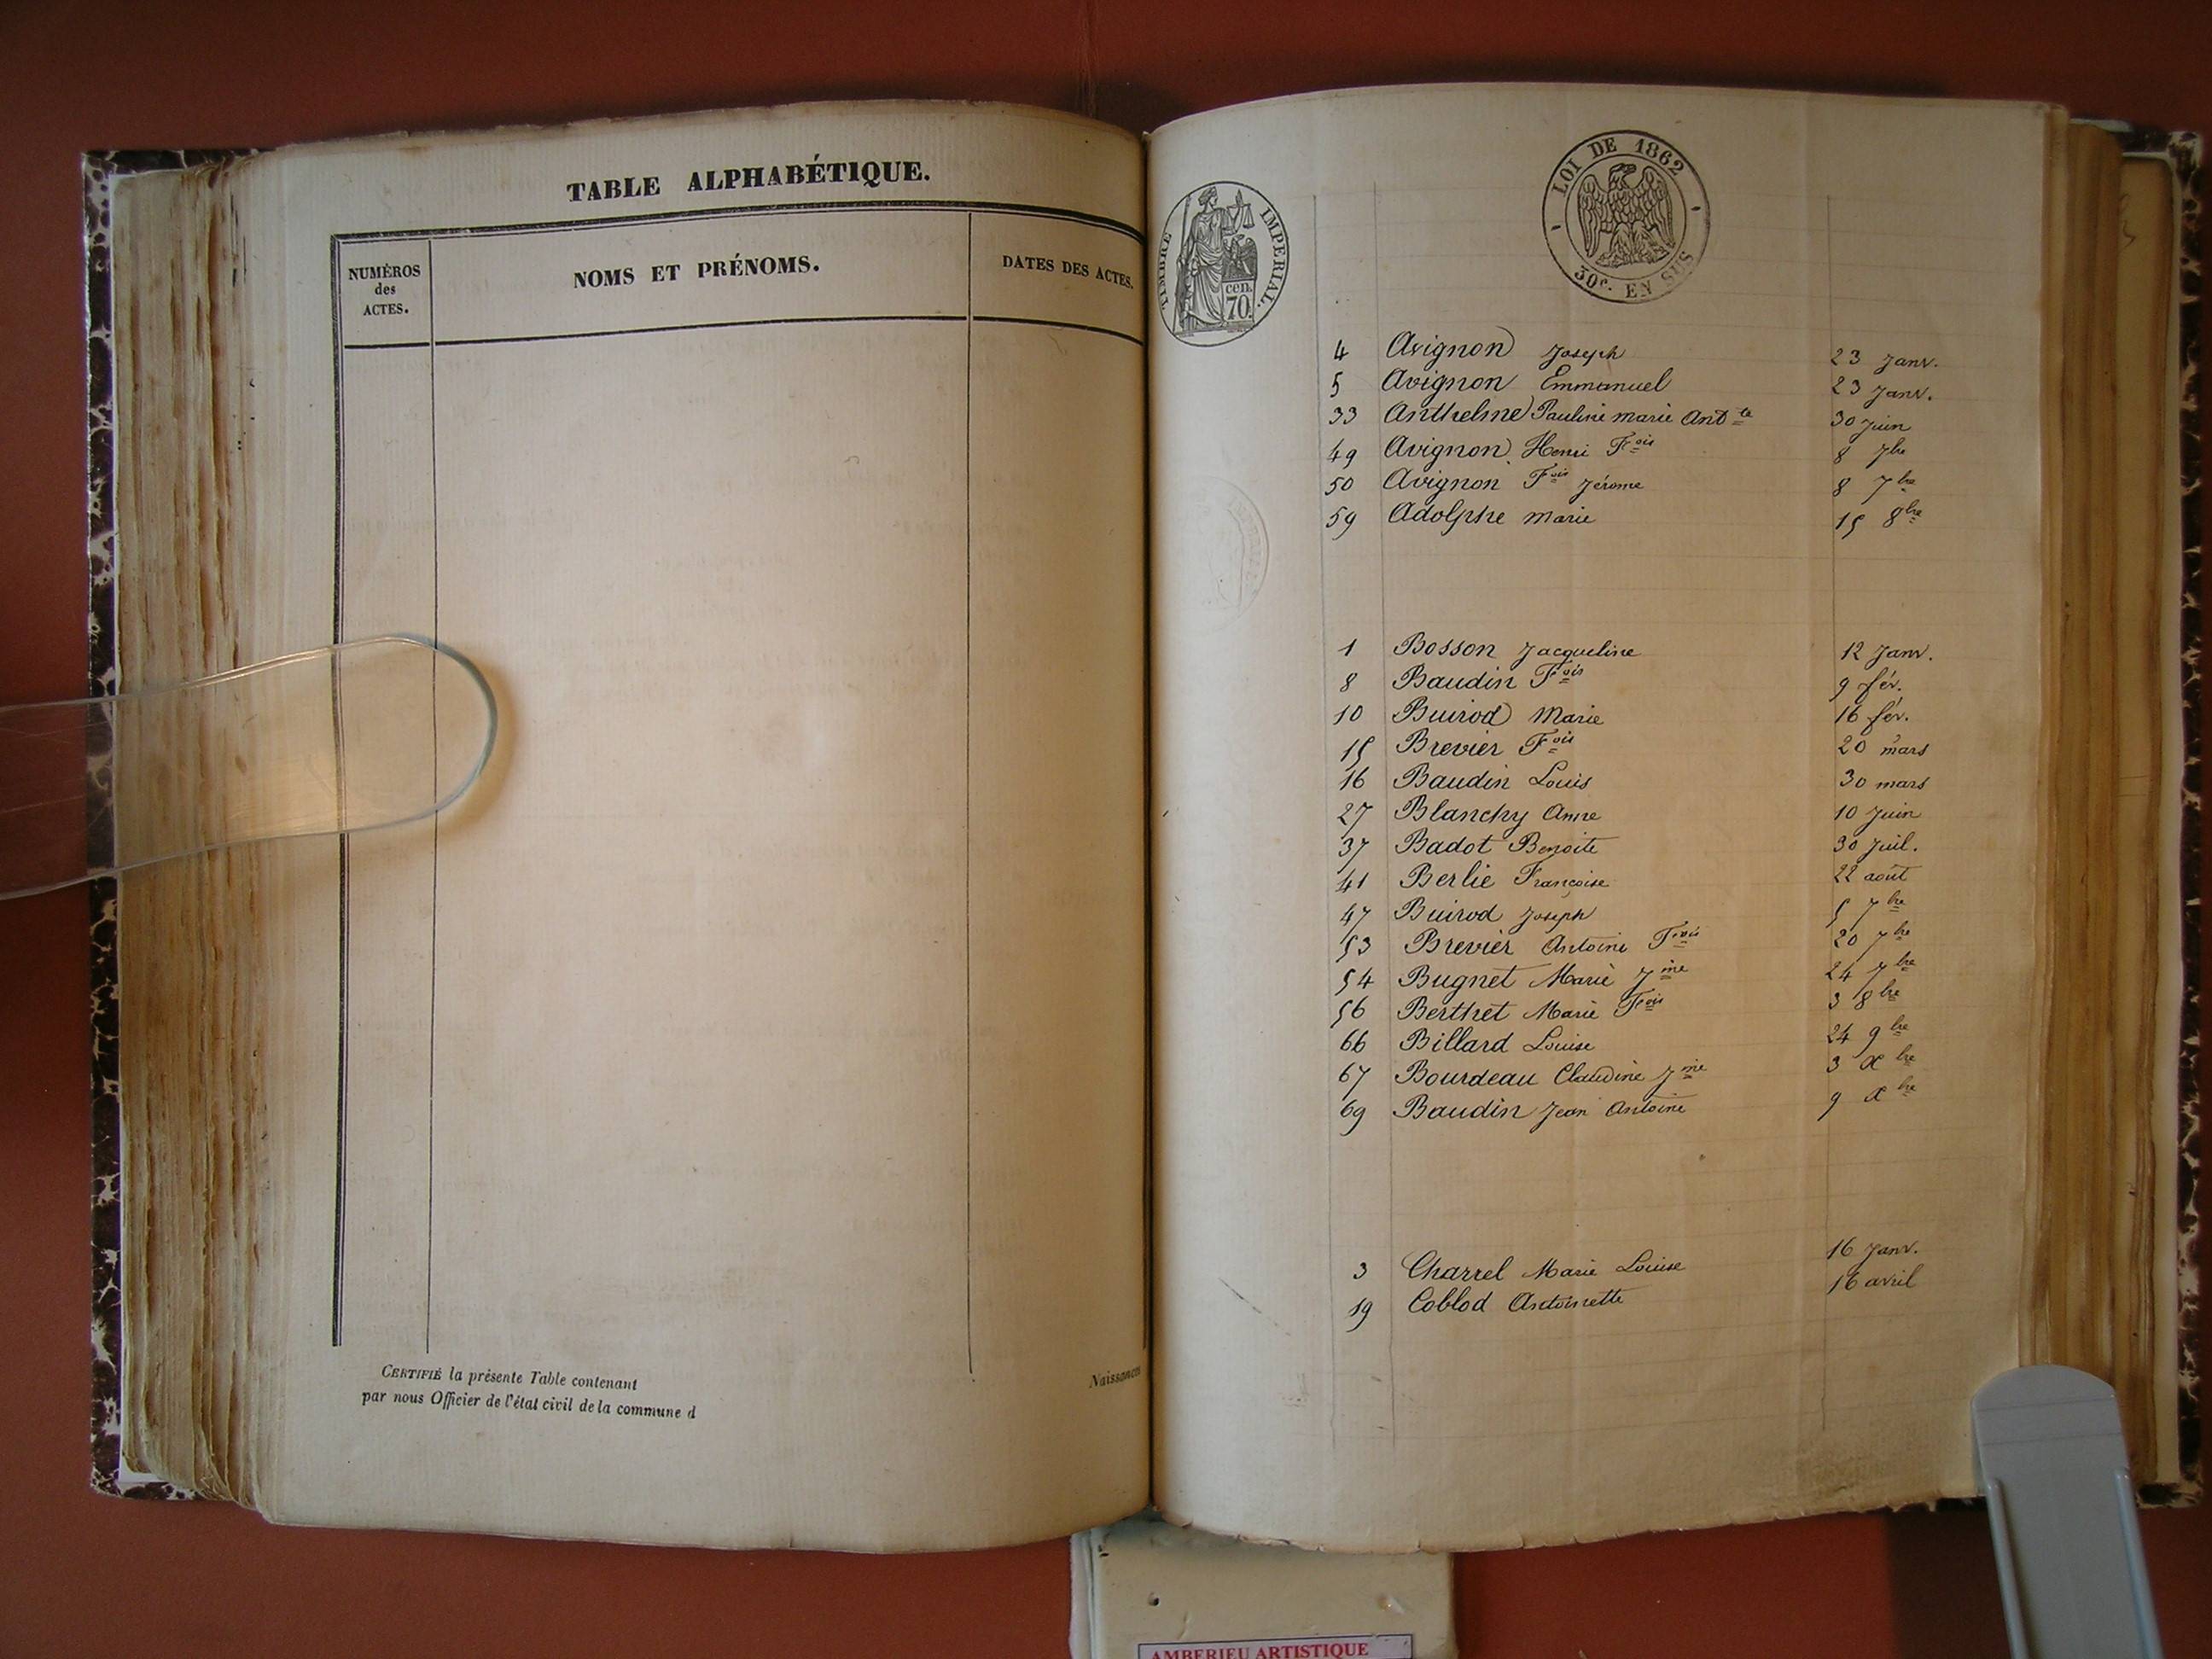 TABLE ALPHABÉTIQUE.
NUMÉROS
des
ACTES.
NOMS ET PRÉNOMS.
DATES DES ACTES.
CERTIFIÉ la présente Table contenant
par nous Officier de l'état civil de la commune d
Naissances
TIMBRE IMPERIAL.
cen.
70.
LOI DE 1862
30c. EN SUS
4 Avignon Joseph 23 Janv.
5 Avignon Emmanuel 23 Janv.
33 Anthelme Pauline Marie Antte 30 Juin
49 Avignon Henri Fois 8 7bre
50 Avignon Fois Jérome 8 7bre
59 Adolphe Marie 15 8bre
1 Bosson Jacqueline 12 Janv.
8 Baudin Fois 9 fév.
10 Buirod Marie 16 fév.
15 Brevier Fois 20 mars
16 Baudin Louis 30 mars
27 Blanchy Anne 10 Juin
37 Badot Benoite 30 Juil.
41 Berlie Françoise 22 août
47 Buirod Joseph 5 7bre
53 Brevier Antoine Fois 20 7bre
54 Bugnet Marie Jine 24 7bre
56 Berthet Marie Fois 3 8bre
66 Billard Louise 24 9bre
67 Bourdeau Claudine Jine 3 Xbre
69 Baudin Jean Antoine 9 Xbre
3 Charrel Marie Louise 16 Janv.
19 Coblod Antoinette 16 avril
AMBERIEU ARTISTIQUE